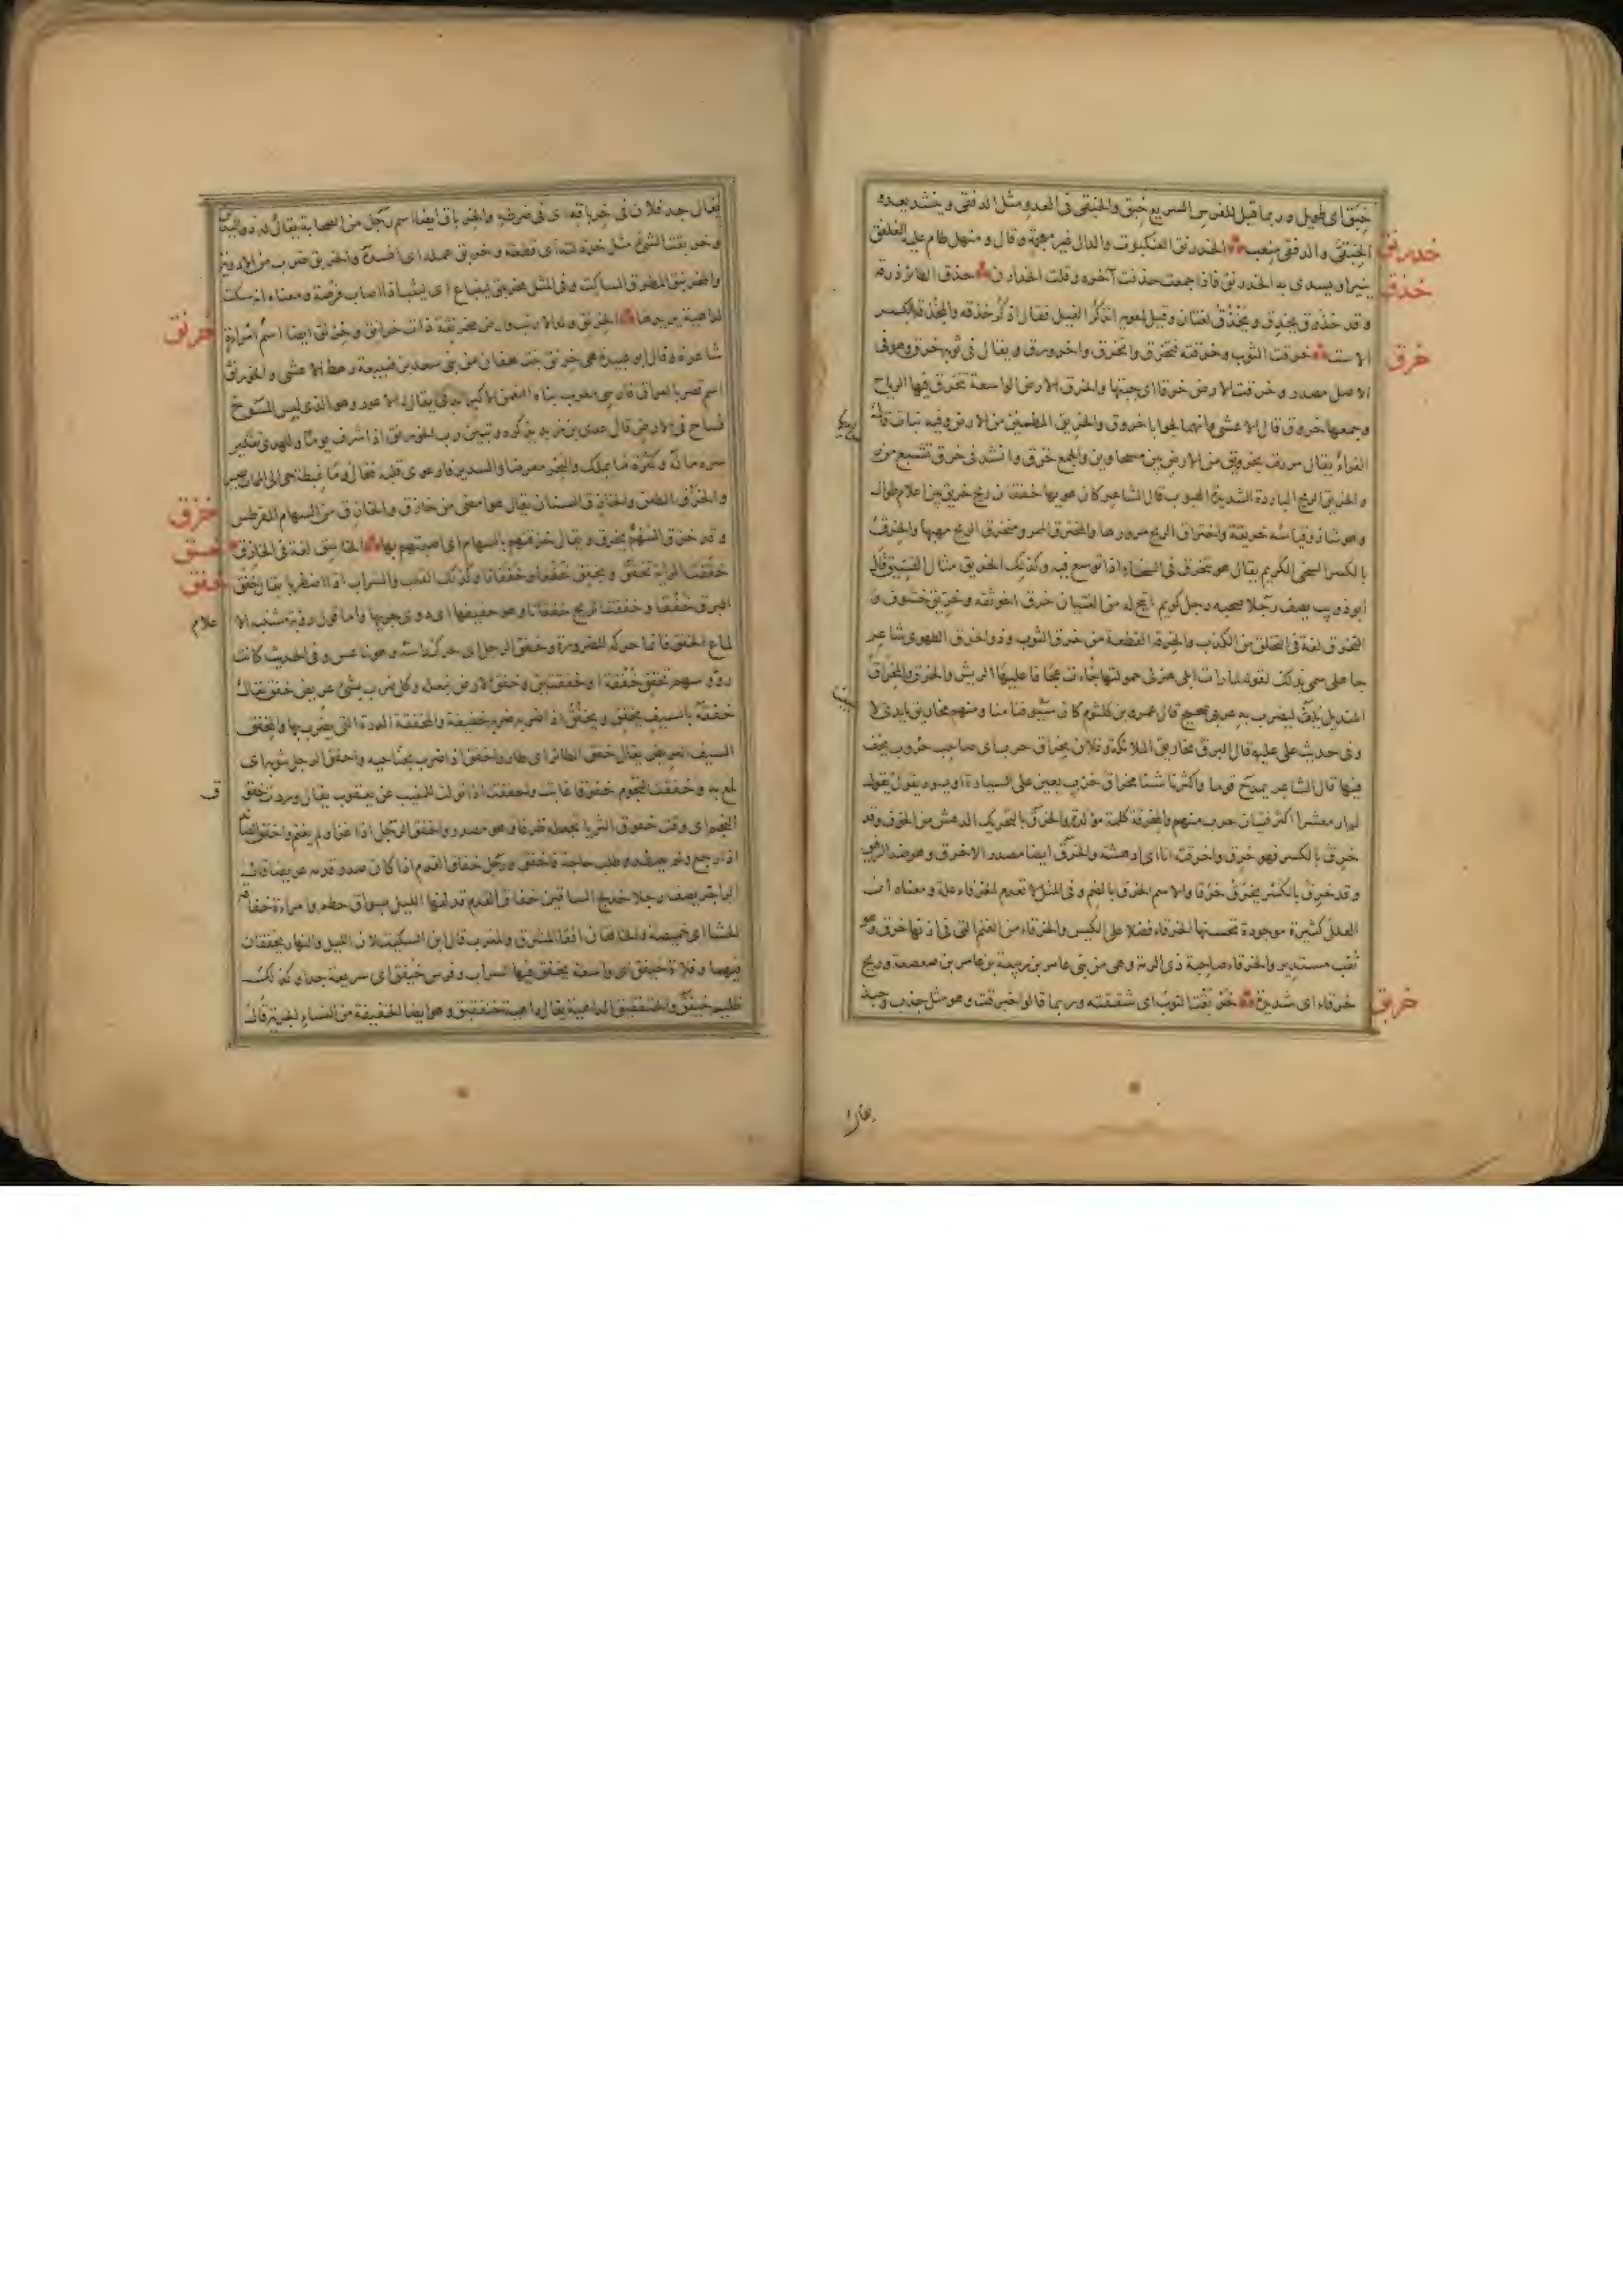 خبق اى طويل وربما قيل للفرس السريع خبق والخبقى فى العدو مثل الدفقى وينشد يعدو
خدرنق
الخبقى والدفقى منعب الخدرنق العنكبوت والدال غير معجمة وقال ومنهل طام عليه الغلفق
خذق
ينير او يسدى به الخدرنق فاذا جمعت حذفت آخره وقلت الخدارن خذق الطائر ذرقه
وقد خذق يخذق ويخذق لغتان وقيل لمعوية اتذكر الفيل فقال اذكر خذقه والمخذقة بالكسر
خرق
الاست خرقت الثوب وخرقته فتخرق وانخرق واخرورق ويقال فى ثوبه خرق وهو فى
الاصل مصدر وخرقت الارض خرقا اى جبتها والخرق الارض الواسعة تتخرق فيها الرياح
وجمعها خروق قال والخريق المطمئن من الارض وفيه نبات قال
الفراء يقال مررت بخريق من الارض بين مسحاوين والجمع خرق وانشد فى خرق تشبع من
والخريق الريح الباردة الشديدة الهبوب قال الشاعر كان هويها خفقان ريح خريق بين اعلام طوال
وهو شاذ وقياسه خريقة واختراق الريح مرورها والمخترق الممر ومنخرق الريح مهبها والخرق
بالكسر السخى الكريم يقال هو يتخرق فى السخاء اذا توسع فيه وكذلك الخريق مثال الفسيق قال
ابو ذويب يصف رجلا صحبه رجل كريم اتيح له من الفتيان خرق اخو ثقة وخريق خشوف و
التخرق لغة فى التخلق من الكذب والخرقة القطعة من خرق الثوب وذو الخرق الطهوى شاعر
جاهلى سمى بذلك لقوله لما رات ابلى هزلى حمولتها جاءت عجافا عليها الريش والخرق والمخراق
المنديل يلف ليضرب به عربى صحيح قال عمرو بن كلثوم كان سيوفنا منا ومنهم مخاريق بايدى لا
وفى حديث على عليه قال البرق مخاريق الملائكة وفلان مخراق حرب اى صاحب حروب يخف
فيها قال الشاعر يمدح قوما
خرق بالكسر فهو خرق واخرقته انا اى ادهشته والخرق ايضا مصدر الاخرق وهو ضد الرفيق
وقد خرق بالكسر يخرق خرقا والاسم الخرق بالضم وفى المثل لا تعدم الخرقاء علة ومعناه ان
العلل كثيرة موجودة تحسنها الخرقاء فضلا على الكيس والخرقاء من الغنم التى فى اذنها خرق وهو
ثقب مستدير والخرقاء صاحبة ذى الرمة وهى من بنى عامر بن ربيعة بن عامر بن صعصعة وريح
خربق
خرقاء اى شديدة خربقت الثوب اى شققته وربما قالوا خبرقت وهو مثل جذب وجبذ
يقال
يقال جد فلان فى خرباقه اى فى ضرطه والخرباق ايضا اسم رجل من الصحابة يقال له ذو اليدين
وخربقت الشئ مثل خردلته اى قطعته وخربق عمله اى افسده والخربق ضرب من الادوية
والمخرنبق المطرق الساكت وفى المثل مخرنبق لينباع اى ليثب اذا اصاب فرصة ومعناه انه سكت
خرنق
لداهية يريدها الخرنق ولد الارنب وارض مخرنقة ذات خرانق وخرنق ايضا اسم امراة
شاعرة وقال ابو عبيدة هى خرنق بنت هفان من بنى سعد بن ضبيعة رهط الاعشى والخورنق
اسم قصر بالعراق فارسى معرب بناه النعمن الاكبر الذى يقال له الاعور وهو الذى لبس المسوح
فساح فى الارض قال عدى بن زيد يذكره وتبين رب الخورنق اذ اشرف يوما وللهدى تفكير
سره ماله وكثرة ما يملك والبحر معرضا والسدير فارعوى قلبه فقال وما غبطة حى الى الممات يصير
خزق
والخزق الطعن والخازق السنان يقال هو امضى من خازق والخازق من السهام المقرطس
خسق
وقد خزق السهم يخزق ويقال خزقتهم بالسهام اى اصبتهم بها الخاسق لغة فى الخازق
خفق
خفقت الراية تخفق وتخفق خفقا وخفقانا وكذلك القلب والسراب اذا اضطربا يقال خفق
البرق خفقا وخفقت الريح خفقانا وهو حفيفها اى دوى جريها واما قول رؤبة مشتبه الا
علام
لماع الخفق فانما حركه للضرورة وخفق الرجل اى حرك راسه وهو ناعس وفى الحديث كانت
رؤوسهم تخفق خفقة او خفقتين وخفق الارض بنعله وكل ضرب بشئ عريض خفق يقال
خفقه بالسيف يخفق ويخفق اذا ضربه ضربة خفيفة والمخفقة الدرة التى يضرب بها والمخفق
السيف العريض يقال خفق الطائر اى طار واخفق اذا ضرب بجناحيه واخفق الرجل بثوبه اى
لمع به وخفقت النجوم خفوقا غابت واخفقت اذا تولت للمغيب عن يعقوب يقال وردت خفق
ق
النجم اى وقت خفوق الثريا يجعله ظرفا وهو مصدر واخفق الرجل اذا غزا ولم يغنم واخفق
اذا رجع ولم يصطد وطلب حاجة فاخفق ورجل خفاق القدم اذا كان صدر قدمه عريضا قال
الراجز يصف رجلا خدلج الساقين خفاق القدم قد لفها الليل بسواق حطم وامراءة خفاقة
الحشا اى خميصة والخافقان افقا المشرق والمغرب قال ابن السكيت لان الليل والنهار يخفقان
فيهما وفلاة خيفق اى واسعة يخفق فيها السراب وفرس خيفق اى سريعة جدا وكذلك
ظليم خيفق والخنفقيق الداهية يقال داهية خنفقيق وهو ايضا الخفيفة من النساء الجرية قال